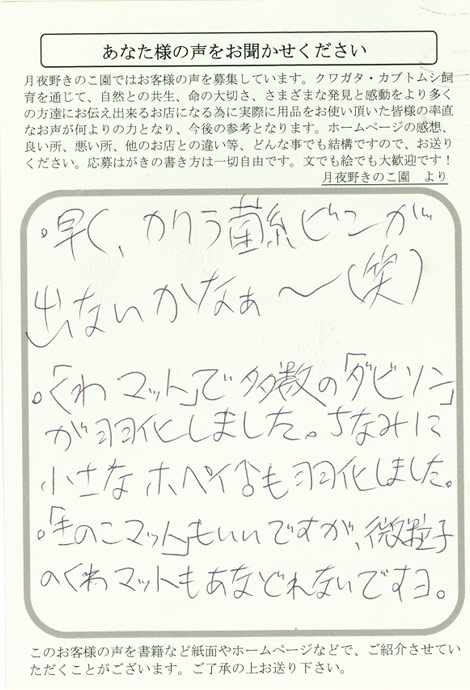 あなた様の声をお聞かせください
月夜野きのこ園ではお客様の声を募集しています。クワガタ・カブトムシ飼
育を通じて、自然との共生、命の大切さ、さまざまな発見と感動をより多く
の方達にお伝え出来るお店になる為に実際に用品をお使い頂いた皆様の率直
なお声が何よりの力となり、今後の参考となります。ホームページの感想、
良い所、悪い所、他のお店との違い等、どんな事でも結構ですので、お送り
ください。応募はがきの書き方は一切自由です。文でも絵でも大歓迎です！
月夜野きのこ園　より
・早く、カワラ菌糸ビンが
出ないかなぁ〜（笑）
・「くわマット」で多数の「ダビソン」
が羽化しました。ちなみに
小さなホペイ♂も羽化しました。
・「きのこマット」もいいですが、微粒子
のくわマットもあなどれないですヨ。
このお客様の声を書籍など紙面やホームページなどで、ご紹介させてい
ただくことがございます。ご了承の上お送り下さい。